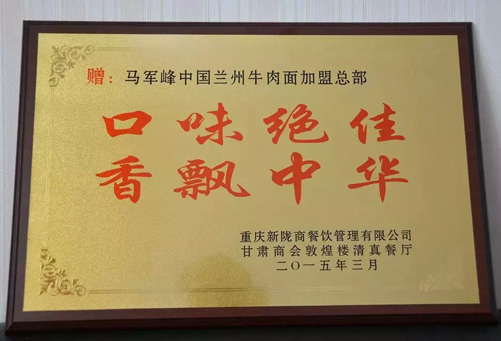 赠：马军峰中国兰州牛肉面加盟总部
口味绝佳
香飘中华
重庆新陇商餐饮管理有限公司
甘肃商会敦煌楼清真餐厅
二〇一五年三月